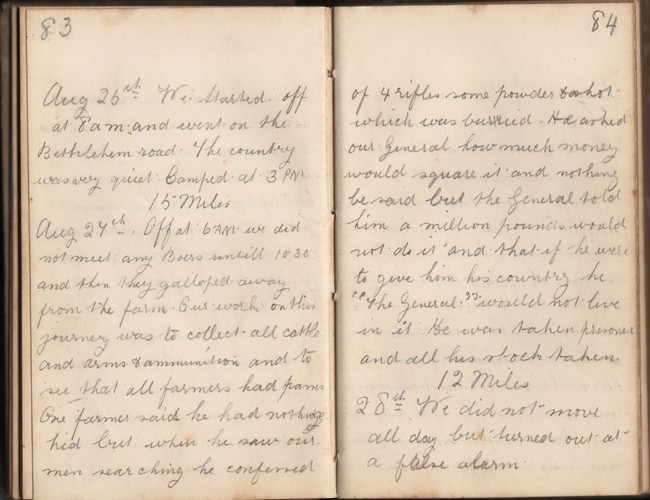 83
Aug 26th We started off
at 8 am and went on the
Bethlehem road. The country
was very quiet. Camped at 3 PM
15 Miles
Aug 27th. Off at 6 AM we did
not meet any Boers untill 10 30
and then they galloped away
from the farm. Our work on this
journey was to collect all cattle
and arms & ammunition and to
see that all farmers had passes
One farmer said he had nothing
hid but when he saw our
men searching he confessed
84
of 4 rifles some powder & shot
which was burried. He asked
our General how much money
would square it and nothing
be said but the General told
him a million pounds would
not do it and that if he were
to give him his country he
"The General" would not live
in it He was taken prisoner
and all his stock taken.
12 Miles
28th We did not move
all day but turned out at
a false alarm